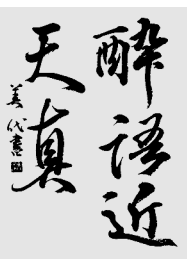 醉語近
天真
美代書